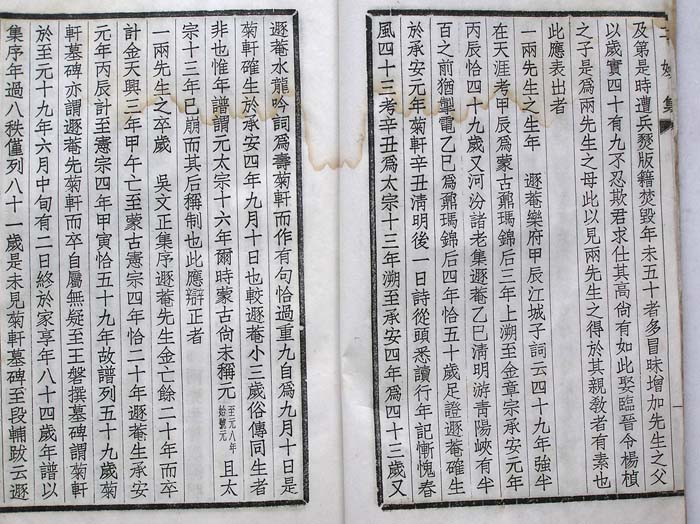 二妙集
及第是時遭兵燹版籍焚毀年未五十者多冒昧增加先生之父
以歲實四十有九不忍欺君求仕其高尚有如此娶臨晉令楊楨
之子是爲兩先生之母此以見兩先生之得於其親敎者有素也
此應表出者
一兩先生之生年　遯菴樂府甲辰江城子詞云四十九年強半
在天涯考甲辰爲蒙古鼐瑪錦后三年上溯至金章宗承安元年
丙辰恰四十九歲又河汾諸老集遯菴乙巳淸明游靑陽峽有半
百之前猶掣電乙巳爲鼐瑪錦后四年恰五十歲足證遯菴確生
於承安元年菊軒辛丑淸明後一日詩從頭悉讀行年記慚愧春
風四十三考辛丑爲太宗十三年溯至承安四年爲四十三歲又
遯菴水龍吟詞爲壽菊軒而作有句恰過重九自爲九月十日是
菊軒確生於承安四年九月十日也較遯菴小三歲俗傳同生者
非也惟年譜謂元太宗十六年爾時蒙古尙未稱元至元八年始號元且太
宗十三年已崩而其后稱制也此應辯正者
一兩先生之卒歲　吳文正集序遯菴先生金亡餘二十年而卒
計金天興三年甲午亡至蒙古憲宗四年恰二十年遯菴生承安
元年丙辰計至憲宗四年甲寅恰五十九年故譜列五十九歲菊
軒墓碑亦謂遯菴先菊軒而卒自屬無疑至王磐撰墓碑謂菊軒
於至元十九年六月中旬有二日終於家享年八十四歲年譜以
集序年過八秩僅列八十一歲是未見菊軒墓碑至段輔跋云遯